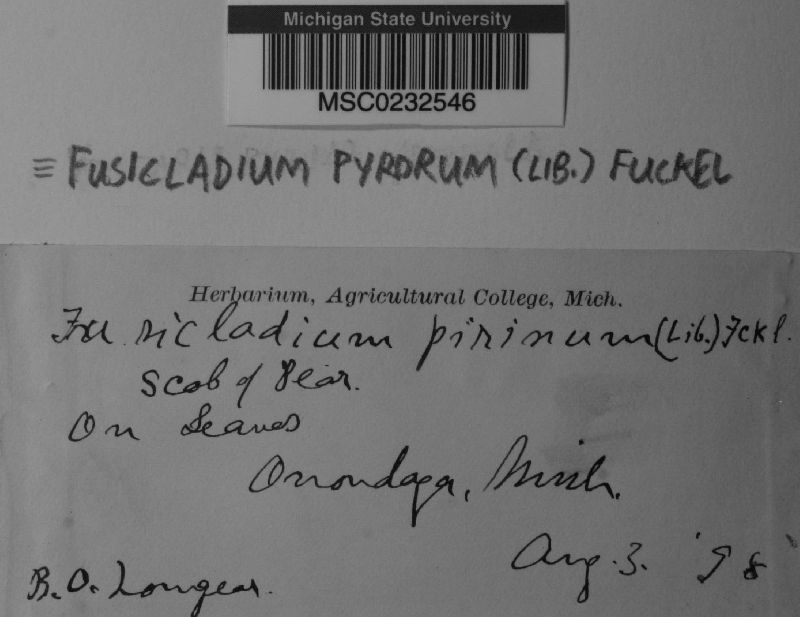 Michigan State University
MSC0232546
≡ FUSICLADIUM PYRORUM (LIB.) FUCKEL
Herbarium, Agricultural College, Mich.
Fusicladium pirinum (Lib.) Fckl.
Scab of Pear.
On Leaves
Onondaga, Mich.
Aug. 3. '98
B.O. Longyear.